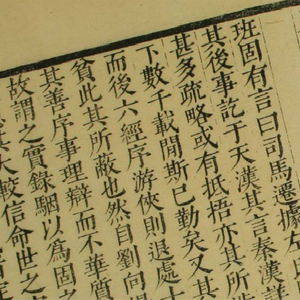 班固有言曰司馬遷據左
其後事訖于天漢其言秦漢詳
甚多疏略或有抵捂亦其所
下數千載閒斯已勤矣又其
而後六經序游俠則退處士
貧此其所蔽也然自劉向揚
其善序事理辯而不華質
故謂之實錄駰以為固之
其大較信命世之